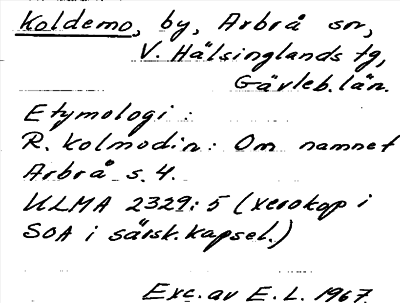 Koldemo, by, Arbrå sn,
V. Hälsinglands tg,
Gävleb. län.
Etymologi:
R. Kolmodin: Om namnet
Arbrå s. 4.
ULMA 2329:5 (xerokop i
SOA i särsk. kapsel.)
Exc. av E. L. 1967.